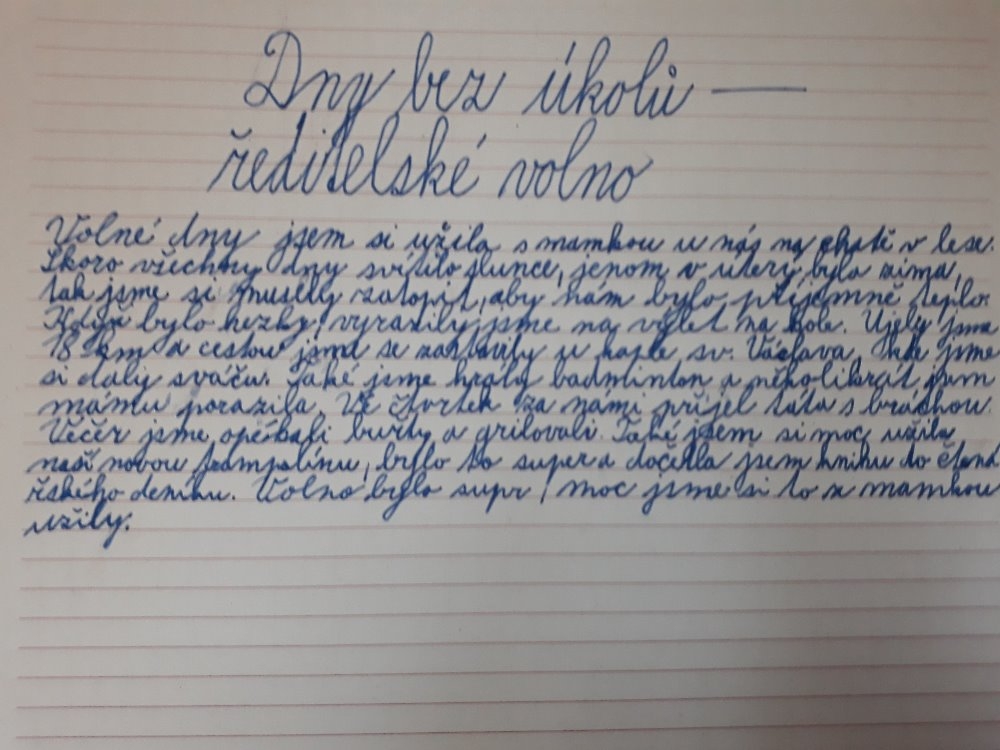 Dny bez úkolů —
ředitelské volno
Volné dny jsem si užila s mamkou u nás na chatě v lese.
Skoro všechny dny svítilo slunce, jenom v úterý byla zima,
tak jsme si musely zatopit, aby nám bylo příjemně teplo.
Když bylo hezky, vyrazily jsme na výlet na kole. Ujely jsme
18 km a cestou jsme se zastavily u kaple sv. Václava, kde jsme
si daly sváču. Také jsme hrály badminton a několikrát jsem
mámu porazila. Ve čtvrtek za námi přijel táta s bráchou.
Večer jsme opékali burty a grilovali. Také jsem si moc užila
naší novou trampolínu, bylo to super a dočetla jsem knihu do čtená
řského deníku. Volno bylo supr, moc jsme si to s mamkou
užily.